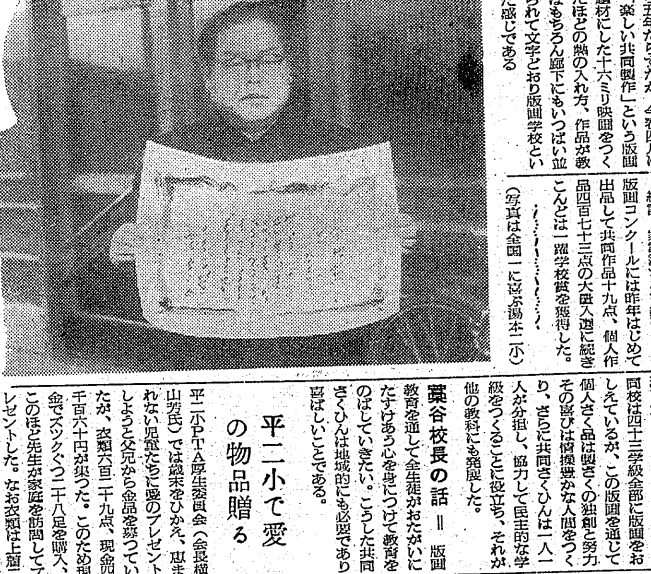 五年たらずだが、今春四月に
「楽しい共同製作」という版画
題材にした十六ミリ映画をつく
たほどの熱の入れ方、作品が教
はもちろん廊下にもいつぱい並
られて文字どおり版画学校とい
た感じである
版画コンクールには昨年はじめて
出品して共同作品十九点、個人作
品四百七十三点の大量入選に続き
こんどは一躍学校賞を獲得した。
（写真は全国一に喜ぶ湯本二小）
同校は四十三学級全部に版画をお
しえているが、この版画を通じて
個人さく品は製さくの独創と努力
その喜びは情操豊かな人間をつく
り、さらに共同さくひんは一人一
人が分担し、協力して民主的な学
級をつくることに役立ち、それが
他の教科にも発展した。
藁谷校長の話＝版画
教育を通して全生徒がおたがいに
たすけあう心を身につけて教育を
のばしていきたい。こうした共同
さくひんは地域的にも必要であり
喜ばしいことである。
平二小で愛
の物品贈る
平二小PTA厚生委員会（会長横
山芳氏）では歳末をひかえ、恵ま
れない児童たちに愛のプレゼント
しようと父兄から金品を募つてい
たが、衣類六百二十九点、現金四
千百六十円が集つた。このため現
金でズックぐつ二十八足を購入、
このほど先生が家庭を訪問してプ
レゼントした。なお衣類は上